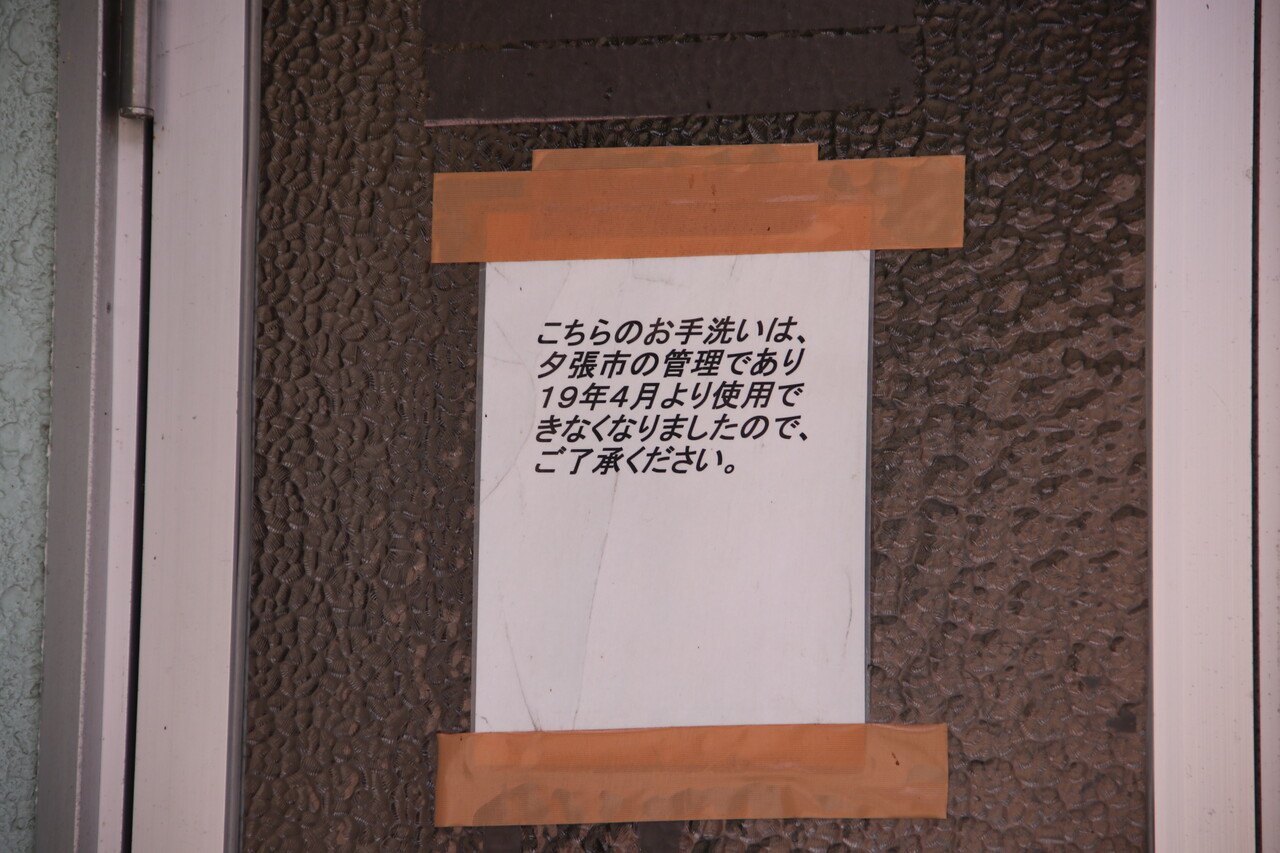 こちらのお手洗いは、
夕張市の管理であり
19年4月より使用で
きなくなりましたので、
ご了承ください。